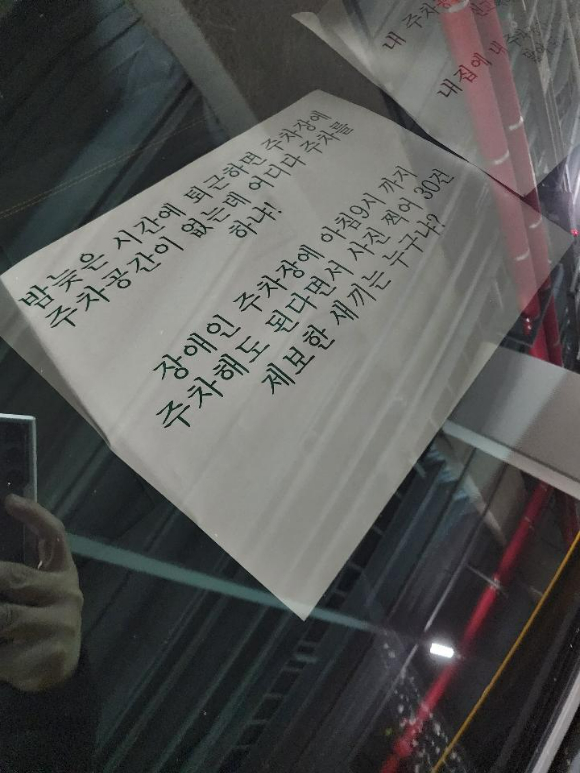 밤늦은 시간에 퇴근하면 주차장에
주차공간이 없는데 어디다 주차를
하냐!
장애인 주차장에 아침9시 까지
주차해도 된다면서 사진 찍어 30건
제보한 새끼는 누구냐?
내 주차
내집에 내